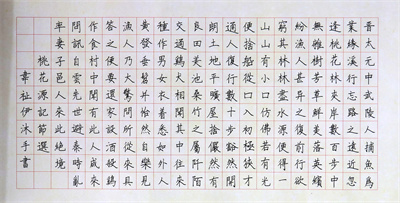 晉太元中武陵人捕魚為
業緣溪行忘路之遠近忽
逢桃花林夾岸數百步中
無雜樹芳草鮮美落英繽
紛漁人甚異之復前行欲
窮其林林盡水源便得一
山山有小口彷彿若有光
便捨船從口入初極狹才
通人復行數十步豁然開
朗土地平曠屋舍儼然有
良田美池桑竹之屬阡陌
交通雞犬相聞其中往來
種作男女衣著悉如外人
黃髮垂髫並怡然自樂見
漁人乃大驚問所從來具
答之便要還家設酒殺雞
作食村中聞有此人咸來
問訊自云先世避秦時亂
率妻子邑人來此絕境
桃花源記節選
韋祉伊沐手書